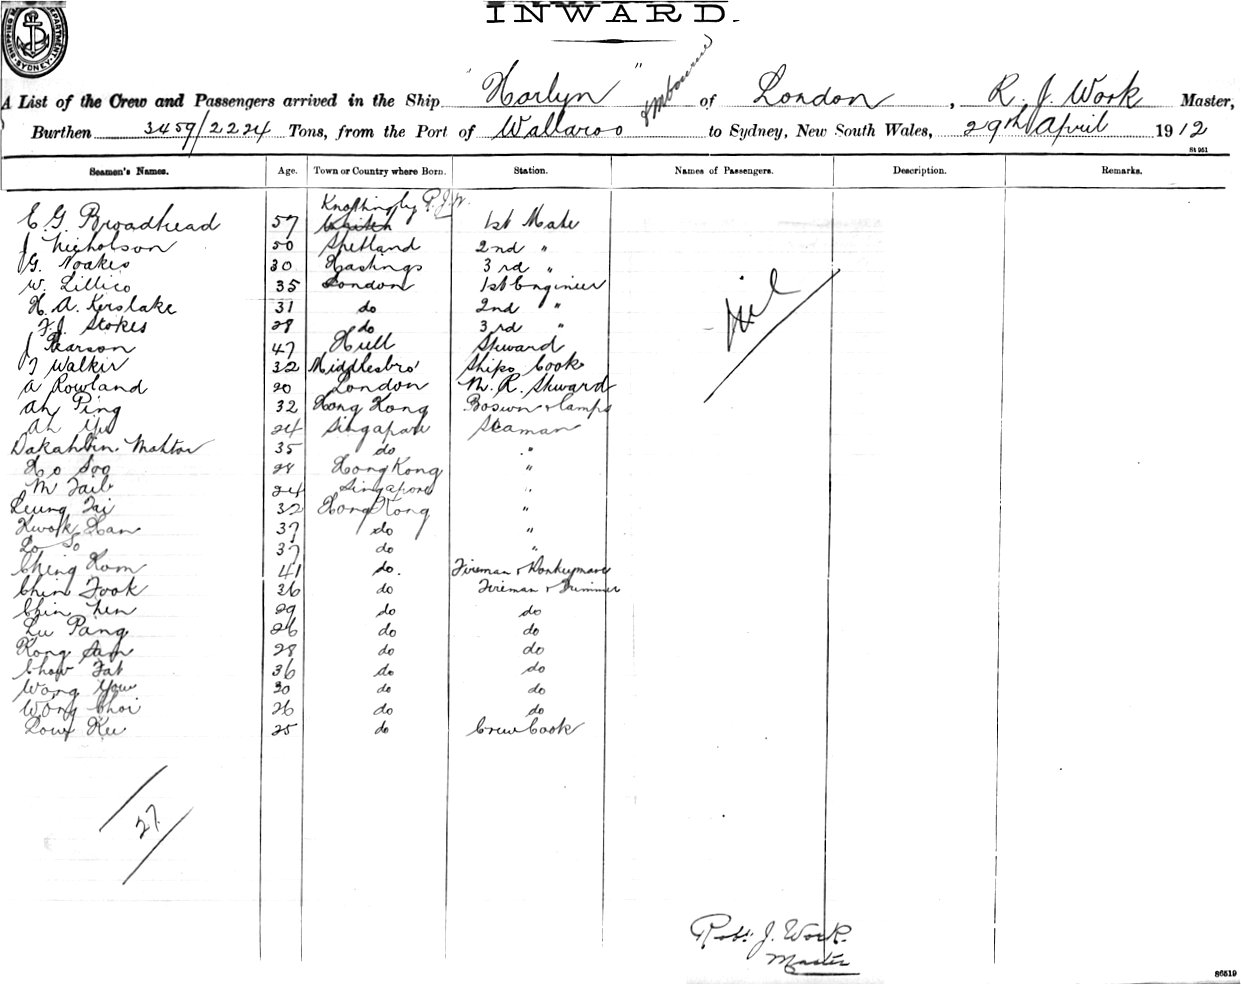 SHIPPING MASTER'S DEPARTMENT SYDNEY
INWARD.
A List of the Crew and Passengers arrived in the Ship "Horlyn" of London, R. J. Work Master,
Burthen 3459/2224 Tons, from the Port of Wallaroo & Mbourne to Sydney, New South Wales, 29th April 1912
84961
Seamen's Names. Age. Town or Country where Born. Station. Names of Passengers. Description. Remarks.
Knottingley R.J.W.
E. G. Broadhead 57 1st Mate
J Nicholson 50 Shetland 2nd "
G. Noakes 30 Hastings 3rd "
W. Lillico 35 London 1st Engineer
H. A. Kerslake 31 do 2nd "
F. J. Stokes 28 do 3rd "
J Pearson 47 Hull Steward
J Walker 32 Middlesbro' Ships Cook
A Rowland 20 London M. R. Steward
Ah Ping 32 Hong Kong Boswn & Lamps
Ah 24 Singapore Seaman
Dakahbin Mahtor 35 do "
Ho Soo 28 Hong Kong "
M Taib 24 Singapore "
Leung Tai 32 Hong Kong "
Kwok Han 37 do "
Lo So 37 do "
Ching Kom 41 do. Fireman & Donkeyman
Chin Fook 36 do Fireman & Trimmer
Chin Yen 29 do do
Lu Pang 26 do do
Kong Sam 28 do do
Chow Fat 36 do do
Wong You 30 do do
Wong Choi 26 do do
Low Kee 25 do Crew Cook
Nil
27
Robt. J. Work.
Master
86519